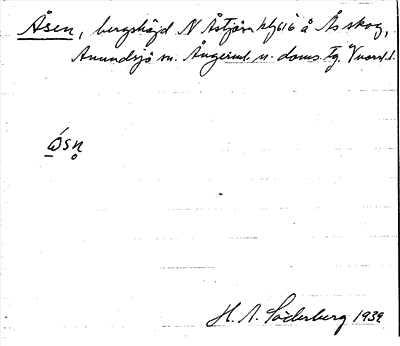 Åsen, bergshöjd N Åstjärn hfj 616 å Ås skog,
Anundsjö sn. Ångerml. n. doms. tg. Vnorrl. l.
ώsn̥
H. A. Söderberg 1939